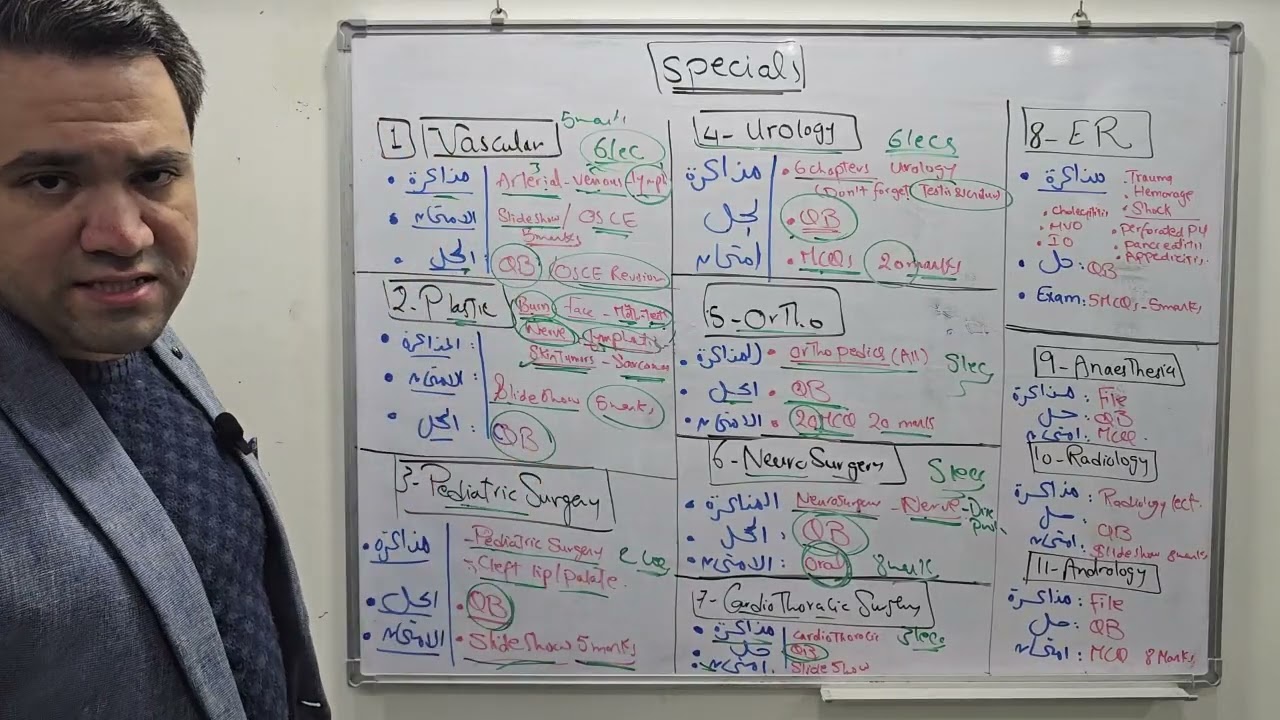 Specials
5 marks
1 Vascular 6lec
3
مذاكرة Arterial - Venous - lymph
الامتحان Slideshow / OSCE
5marks
الحل QB OSCE Revision
2 - Plastic Burn face - Max
Nerve - Lymphatic
المذاكرة : SkinTumors - Sarcomas
الامتحان : SlideShow 5 marks
الحل : QB
3 - Pediatric Surgery
مذاكرة - Pediatric Surgery
- Cleft lip / Palate .
الحل QB
الامتحان SlideShow 5 marks
4 - Urology 6lecs
مذاكرة 6 chapters Urology
(Don't forget
الحل QB
امتحان MCQs 20 marks
5 - Ortho
المذاكرة : Orthopedics (All) 5lec
الحل QB
الامتحان 20 MCQ 20 marks
6 - NeuroSurgery 5lecs
المذاكرة Neurosurgery - Nerve -
الحل : QB
الامتحان : Oral 8 marks
7 - CardioThoracic Surgery
مذاكرة CardioThoracic 3lecs
حل QB
امتحان SlideShow
8 - ER
مذاكرة : Trauma
Hemorrage
Shock
Cholecystitis Perforated PU
MVO Pancreatitis
IO Appedicitis.
حل : QB
Exam : 5MCQs - 5marks
9 - Anaesthesia
مذاكرة : File
حل : QB
امتحان : MCQ
10 - Radiology
مذاكرة : Radiology lect.
حل : QB
امتحان : SlideShow 8marks
11 - Andrology
مذاكرة : File
حل : QB
امتحان : MCQ 8 Marks